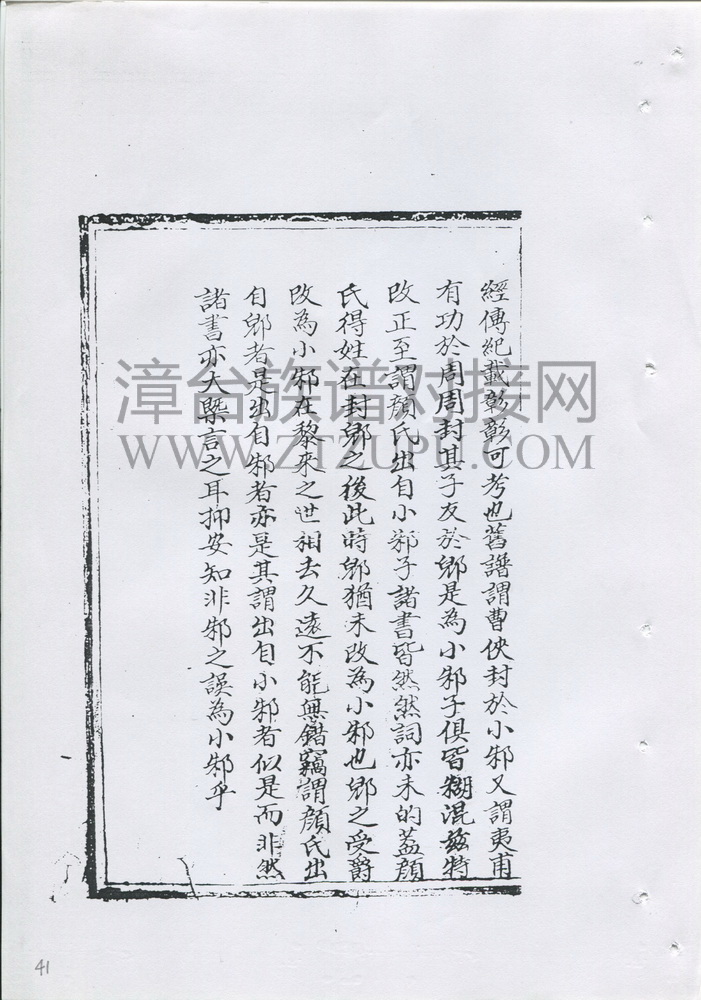 經傳紀載彰彰可考也舊譜謂曹俠封於小邾又謂夷甫
有功於周周封其子友於郳是為小邾子俱皆糊混茲特
改正至謂顏氏出自小邾子諸書皆然然詞亦未的蓋顏
氏得姓在封郳之後此時郳猶未改為小邾也郳之受爵
改為小邾在黎來之世相去久遠不能無錯竊謂顏氏出
自郳者是出自邾者亦是其謂出自小邾者似是而非然
諸書亦大槩言之耳抑安知非邾之誤為小邾乎
漳台族谱对接网
WWW.ZTZUPU.COM
41